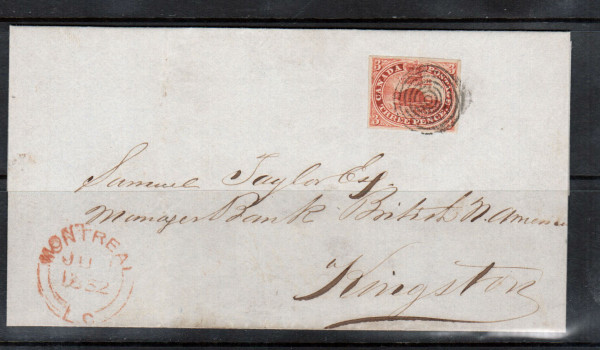 3 CANADA POSTAGE 3
3 THREE PENCE 3
Samuel Taylor Esq.
Manager Bank British N. America
Kingston
MONTREAL
JU
1852
L.C.